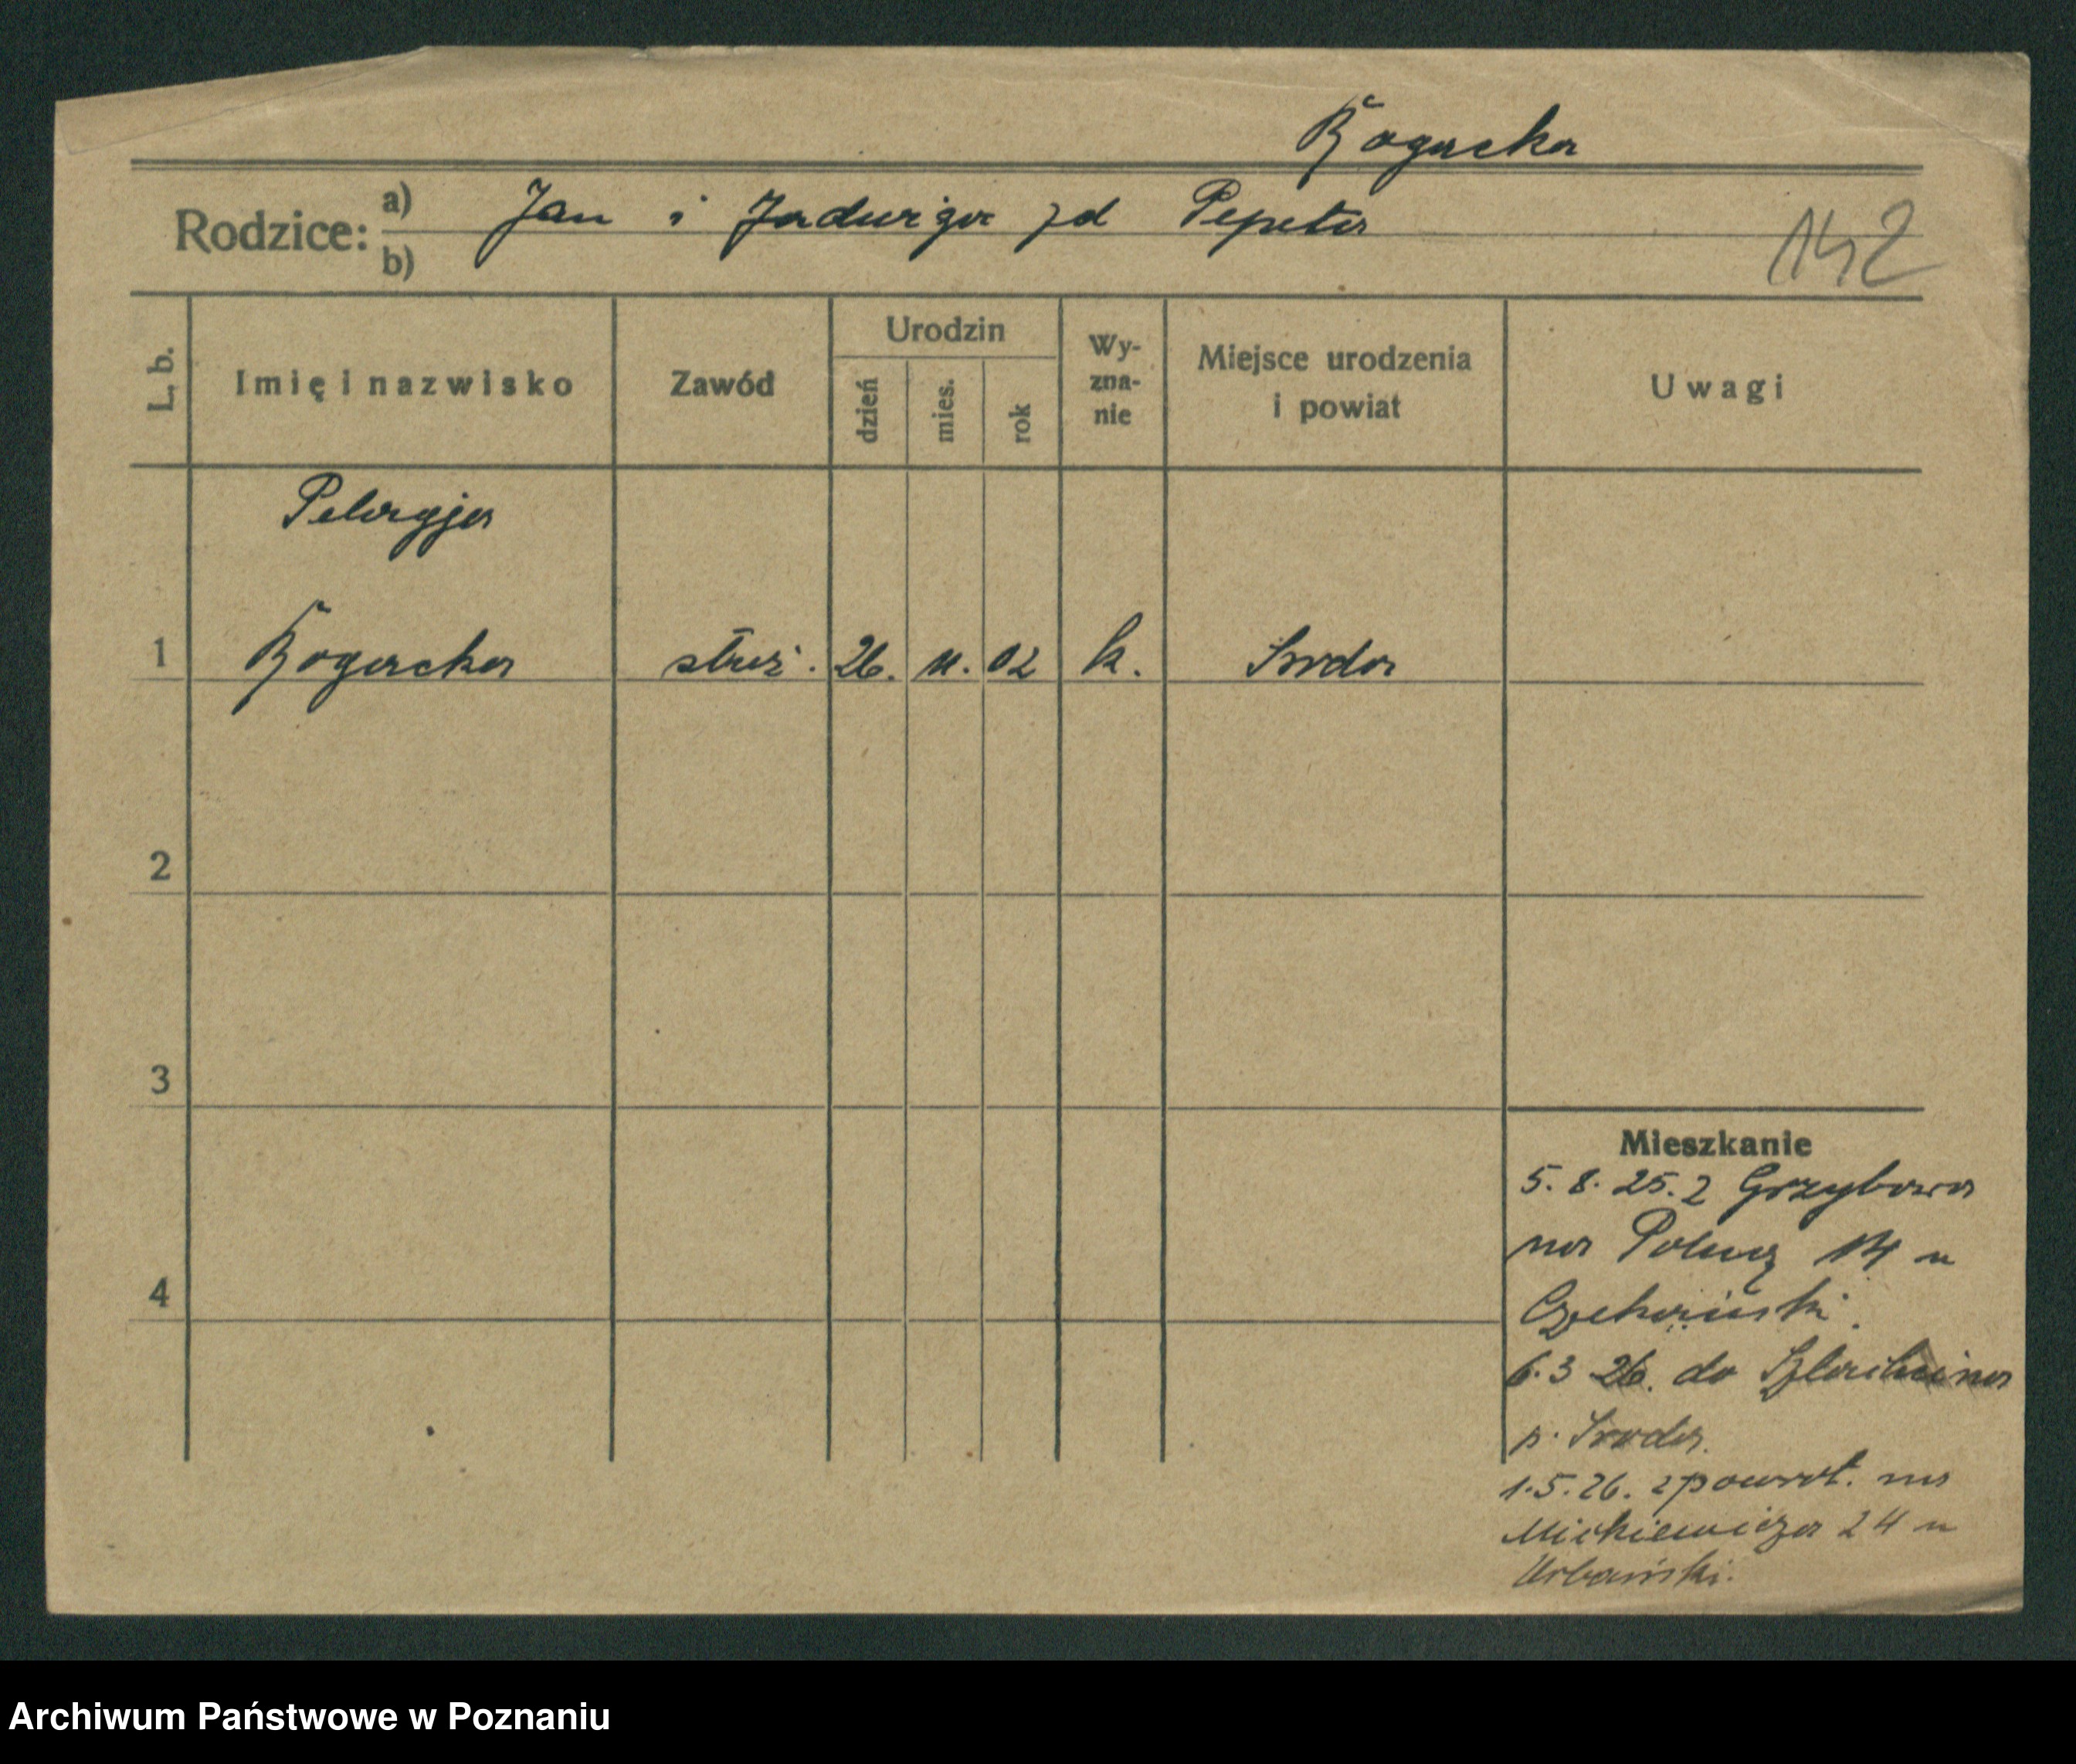 Rogacka
Rodzice: a) Jan i Jadwiga zd Pepeta
b)
142
L. b. Imię i nazwisko Zawód Urodzin dzień mies. rok Wyznanie Miejsce urodzenia i powiat Uwagi
Pelagja
1 Rogacka służ. 26. 11. 02 k. Środa
2
3
4
Mieszkanie
5. 8. 25. z Grzybowa
na Polną 14 u
6. 3 26. do
p. Środa.
1. 5. 26. zpowrot. na
Mickiewicza 24 u
Urbański.
Archiwum Państwowe w Poznaniu